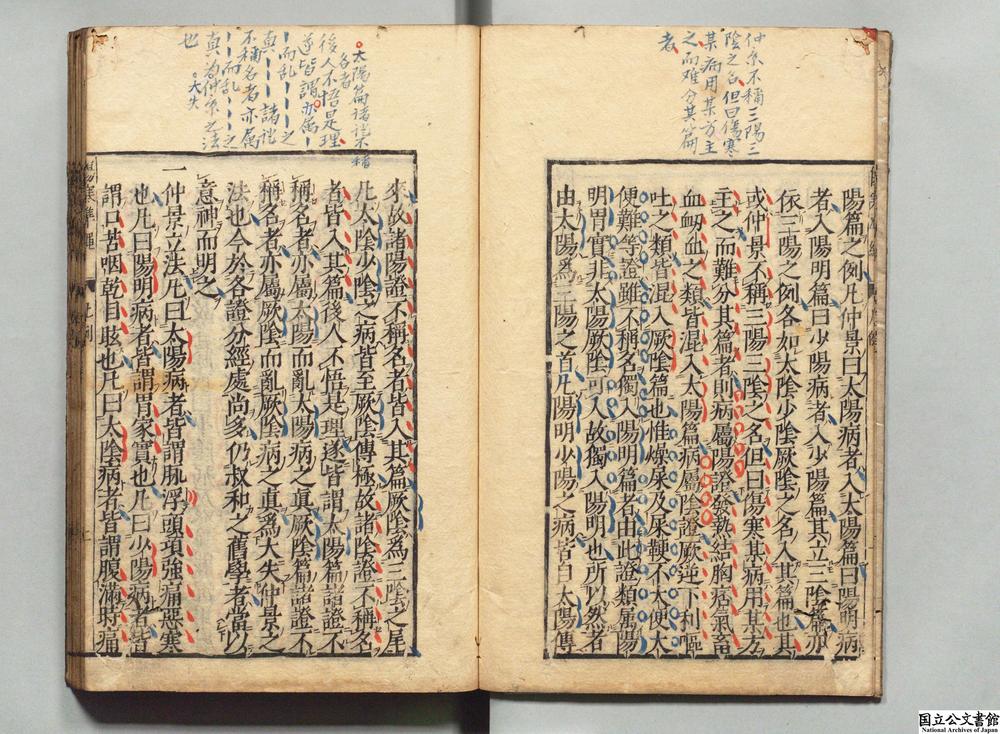 仲景不稱三陽三
陰之名但曰傷寒
某病用某方主
之而难分其篇
者
陽篇之例凡仲景曰太陽病者入太陽篇曰陽明病
者入陽明篇曰少陽病者入少陽篇其立三陰篇亦
依三陽之例各如太陰少陰厥陰之名入其篇也其
或仲景不稱三陽三陰之名但曰傷寒某病用某方
主之而難分其篇者則病屬陽證發熱結胸痞氣畜
血衂血之類皆混入太陽篇病屬陰證厥逆下利嘔
吐之類皆混入厥陰篇也惟燥屎及屎鞕不大便大
便難等證雖不稱名獨入陽明篇者由此證類屬陽
明胃實非太陽厥陰可入故獨入陽明也所以然者
由太陽爲三陽之首凡陽明少陽之病皆自太陽傳
太陽篇諸證不稱
名者
後人不悟是理
遂皆謂亦屬
而乱之
真諸證
不稱名者亦属
而乱之
真为仲景之法
大失
也
來故諸陽證不稱名者皆入其篇厥陰爲三陰之尾
凡太陰少陰之病皆至厥陰傳極故諸陰證不稱名
者皆入其篇後人不悟是理遂皆謂太陽篇諸證不
稱名者亦屬太陽而亂太陽病之真厥陰篇諸證不
稱名者亦屬厥陰而亂厥陰病之真爲大失仲景之
法也今於各證分經處尚多仍叔和之舊學者當以
意神而明之
一仲景立法凡曰太陽病者皆謂脉浮頭項強痛惡寒
也凡曰陽明病者皆謂胃家實也凡曰少陽病者皆
謂口苦咽乾目眩也凡曰太陰病者皆謂腹滿時痛
国立公文書館
National Archives of Japan